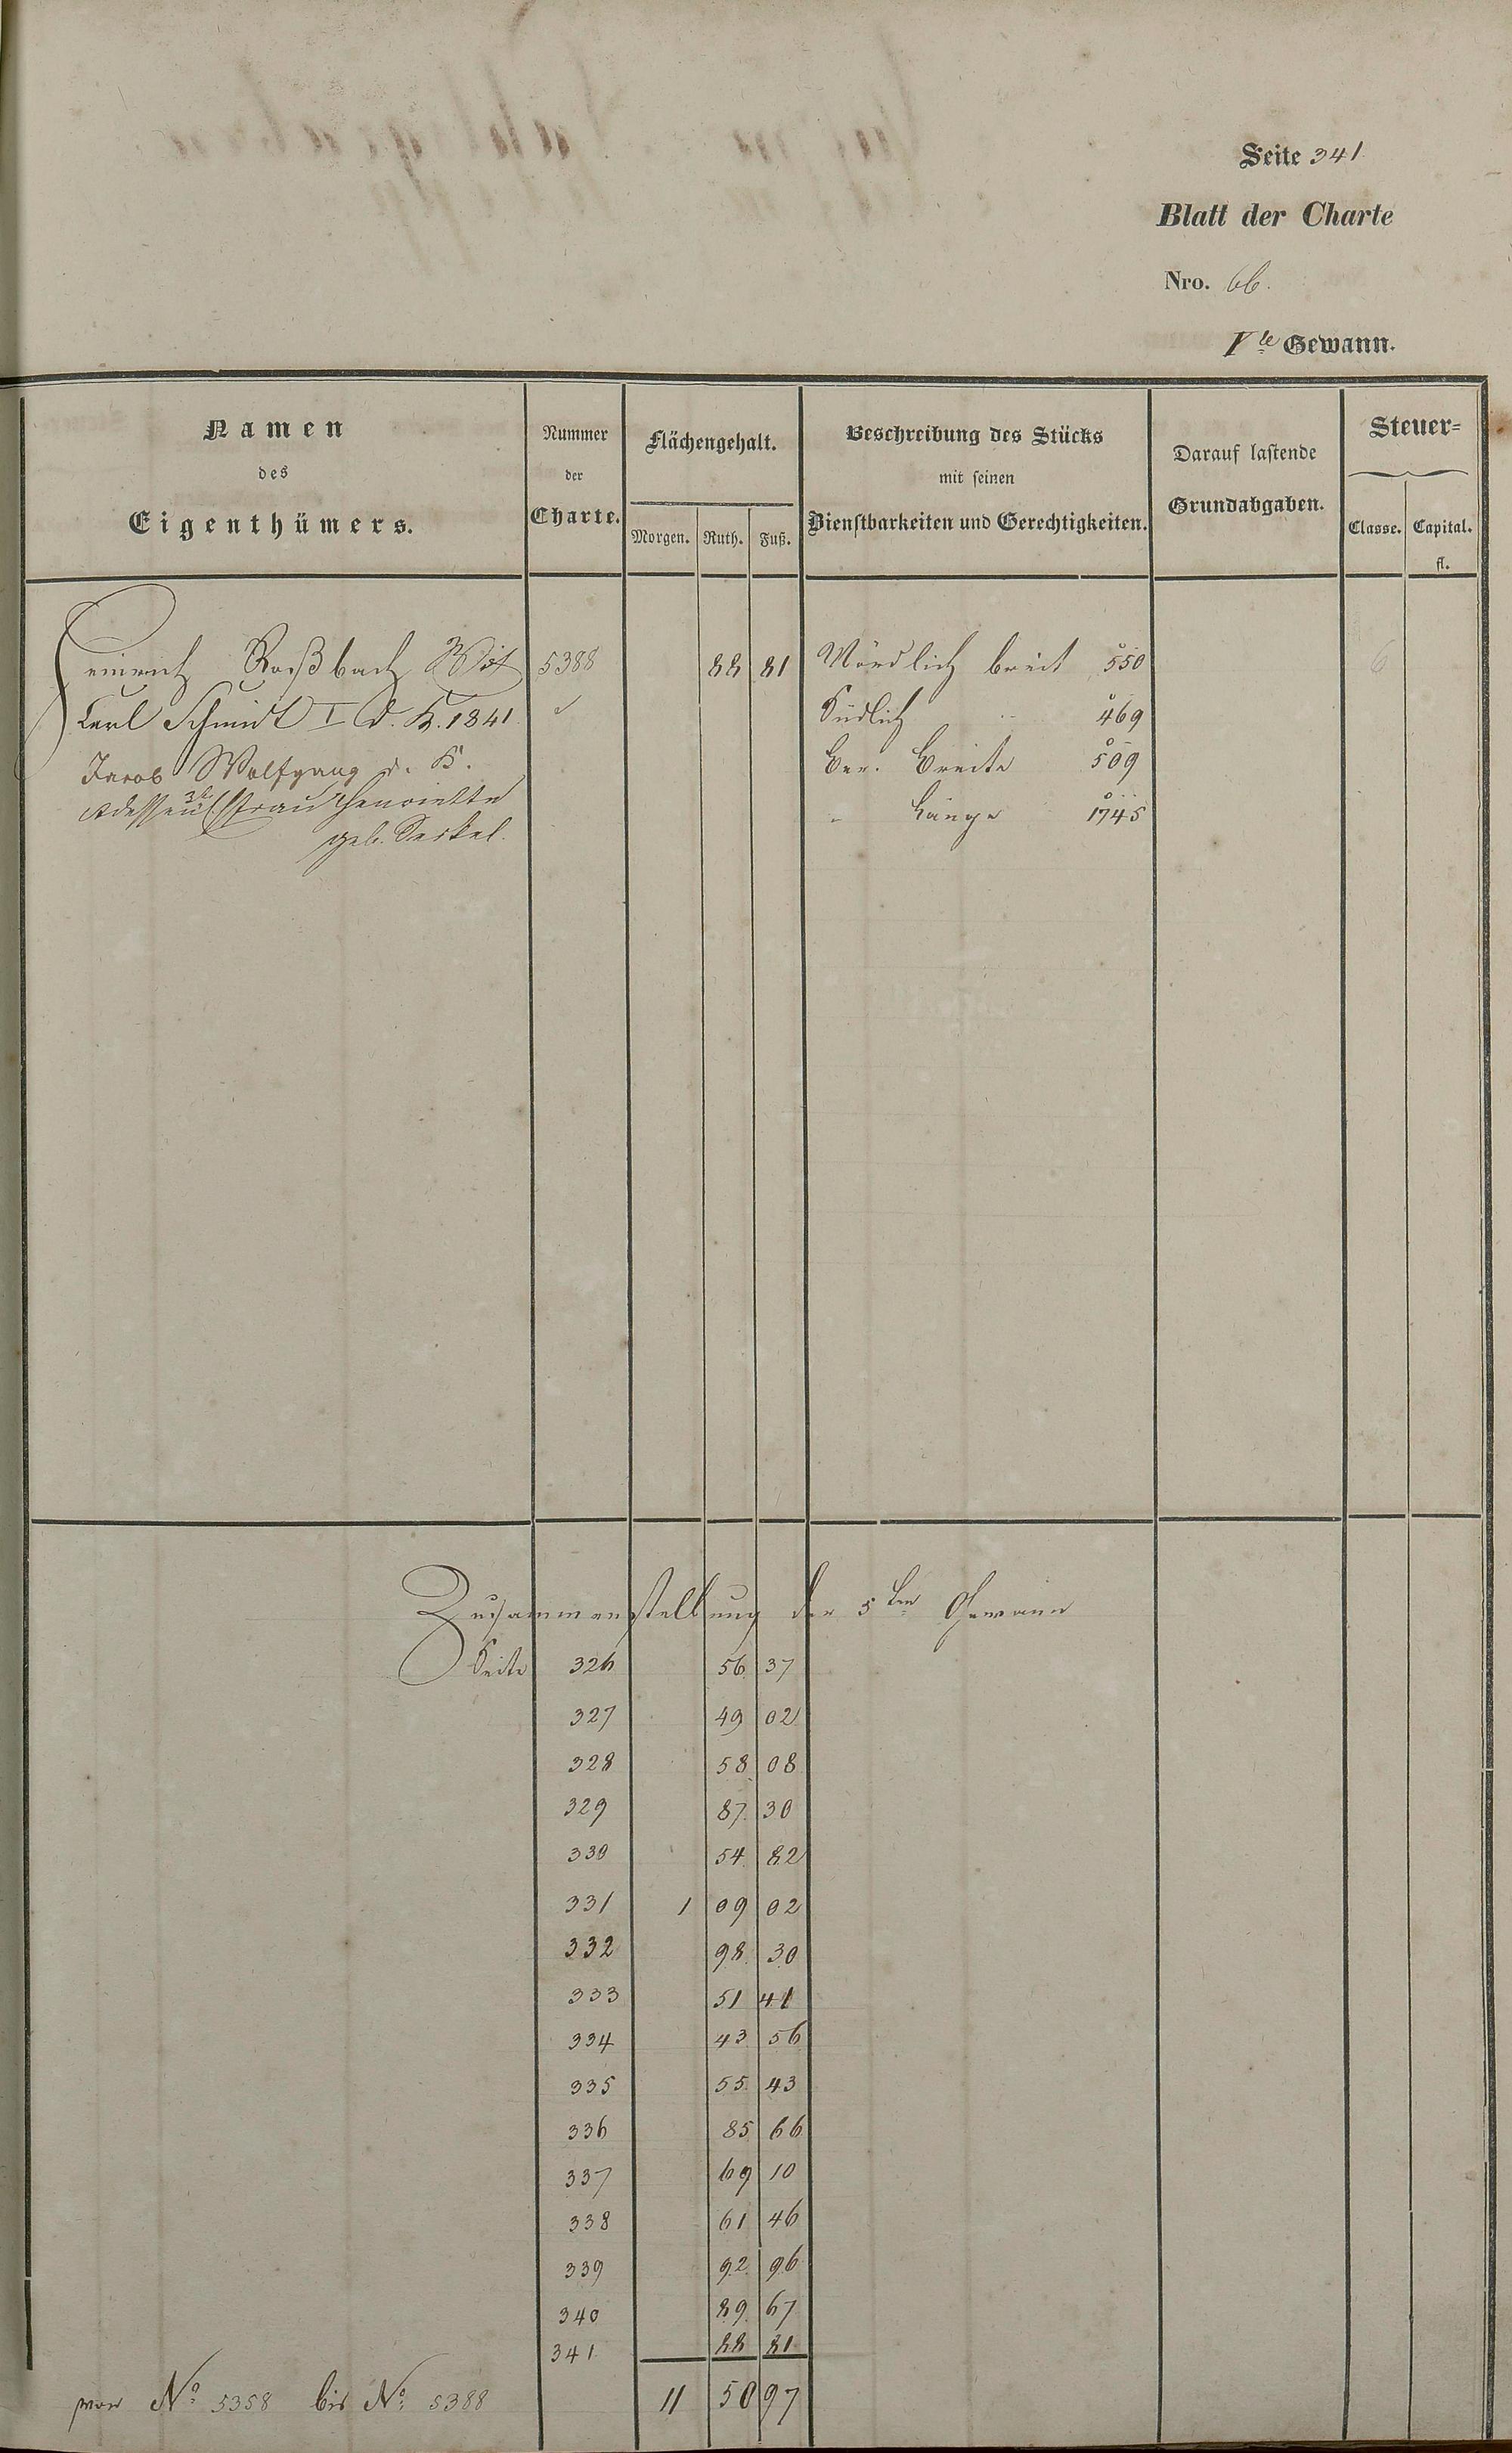 Seite 341
Blatt der Charte
Nro. 66.
V te Gewann.
Namen des Eigenthümers.
Nummer der Charte.
Flächengehalt.
Morgen. Ruth. Fuß.
Beschreibung des Stücks mit seinen Dienstbarkeiten und Gerechtigkeiten.
Darauf lastende Grundabgaben.
Steuer=
Classe. Capital. fl.
Heinrich Roßbach Wit 5388 88 81 Nördlich breit 550 6
Carl Schmidt I d. K. 1841 Südlich " 469
Jacob Wolfgang d. K. Ber. Breite 509
Frau Henriette " Länge 1745
geb.
Zusammenstellung der 5ten Gewann
Seite 326 56 37
327 49 02
328 58 08
329 87 30
330 54 82
331 1 09 02
332 98 30
333 51 41
334 43 56
335 55 43
336 85 66
337 69 10
338 61 46
339 92 96
340 89 67
341 88 81
von No. 5358 bis No. 5388 11 50 97